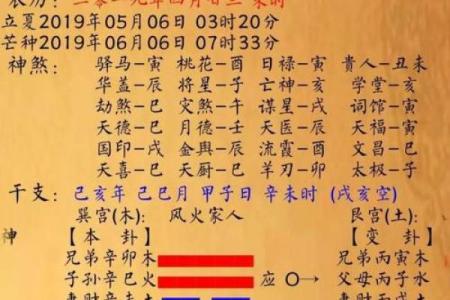 农历: 二零一九年四月廿三 未时
立夏2019年05月06日 03时20分
芒种2019年06月06日 07时33分
神煞: 驿马-寅 桃花-酉 日禄-寅 貴人-丑未
华盖-辰 将星-子 亡神-亥 学堂-亥
劫煞-巳 灾煞-午 谋星-戌 词馆-寅
天德-巳 月德-壬 天医-辰 天福-寅
国印-戌 金舆-辰 流霞-酉 文昌-巳
天喜-巳 天厨-巳 羊刃-卯 太极-子
干支: 己亥年 己巳月 甲子日 辛未时 (戌亥空)
巽宫(木): 风火家人 艮宫(土):
神 【本卦】 【变卦】
兄弟辛卯木 兄弟丙寅木
子孙辛巳火 应 O→ 父母丙子水
妻财辛未土 妻财丙戌土